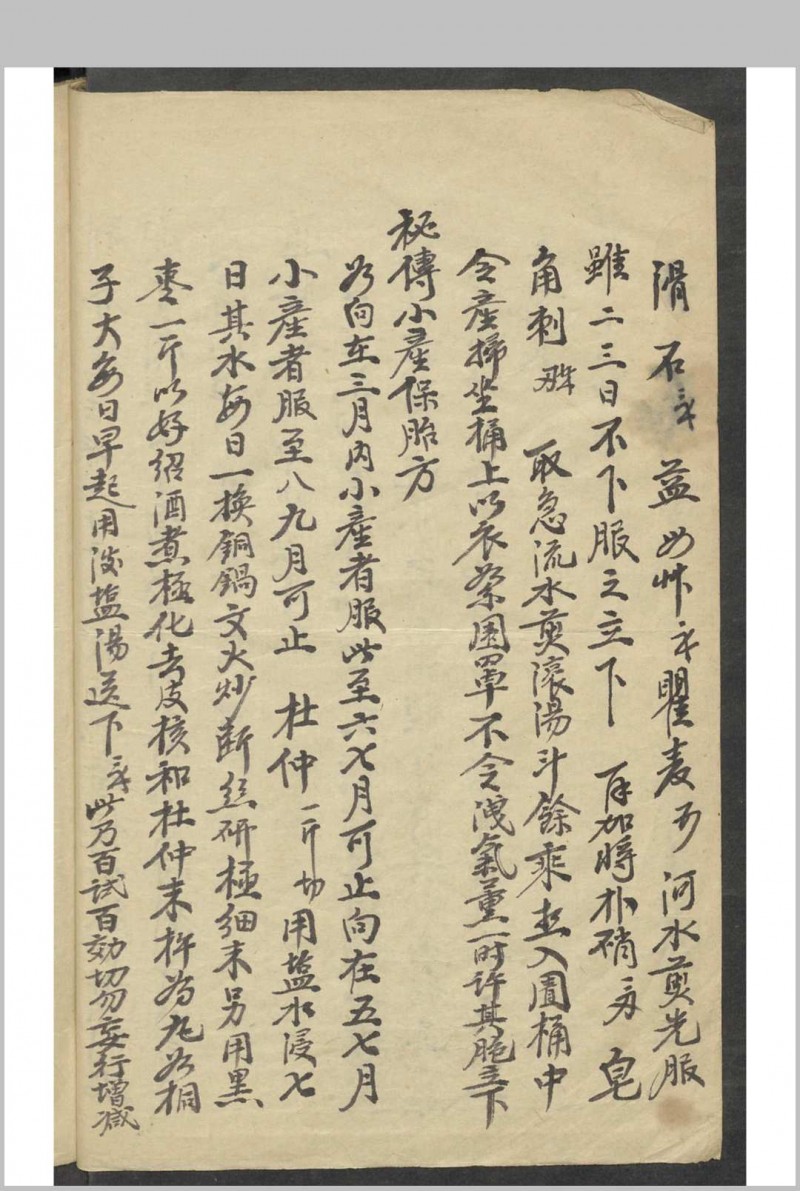 滑石 益母艸 瞿麦 河水煎先服
雖二三日不下服之立下 再加 朴硝 皂
角刺 取急流水煎滚湯斗餘乘热入圊桶中
令産婦坐桶上以衣祭圍罩不令洩氣薫一时许其胞立下
秘傳小產保胎方
如向在三月内小產者服此至六七月可止向在五七月
小產者服至八九月可止 杜仲一斤切用盐水浸七
日其水每日一換銅鍋文火炒断丝研極细末另用黑
枣一斤以好绍酒煮極化去皮核和杜仲末杵為丸如桐
子大每日早起用淡盐湯送下 此乃百試百効切勿妄行增减